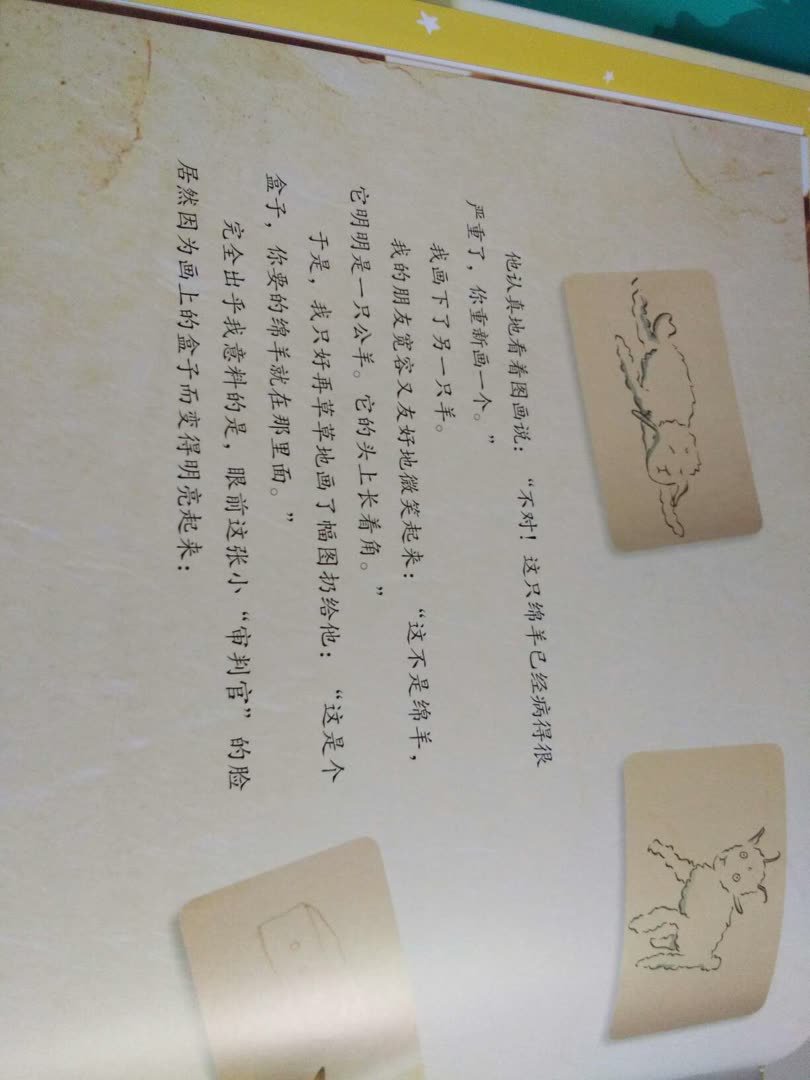 他认真地看着图画说：“不对！这只绵羊已经病得很
严重了，你重新画一个。”
我画下了另一只羊。
我的朋友宽容又友好地微笑起来：“这不是绵羊，
它明明是一只公羊。它的头上长着角。”
于是，我只好再草草地画了幅图扔给他：“这是个
盒子，你要的绵羊就在那里面。”
完全出乎我意料的是，眼前这张小“审判官”的脸
居然因为画上的盒子而变得明亮起来：